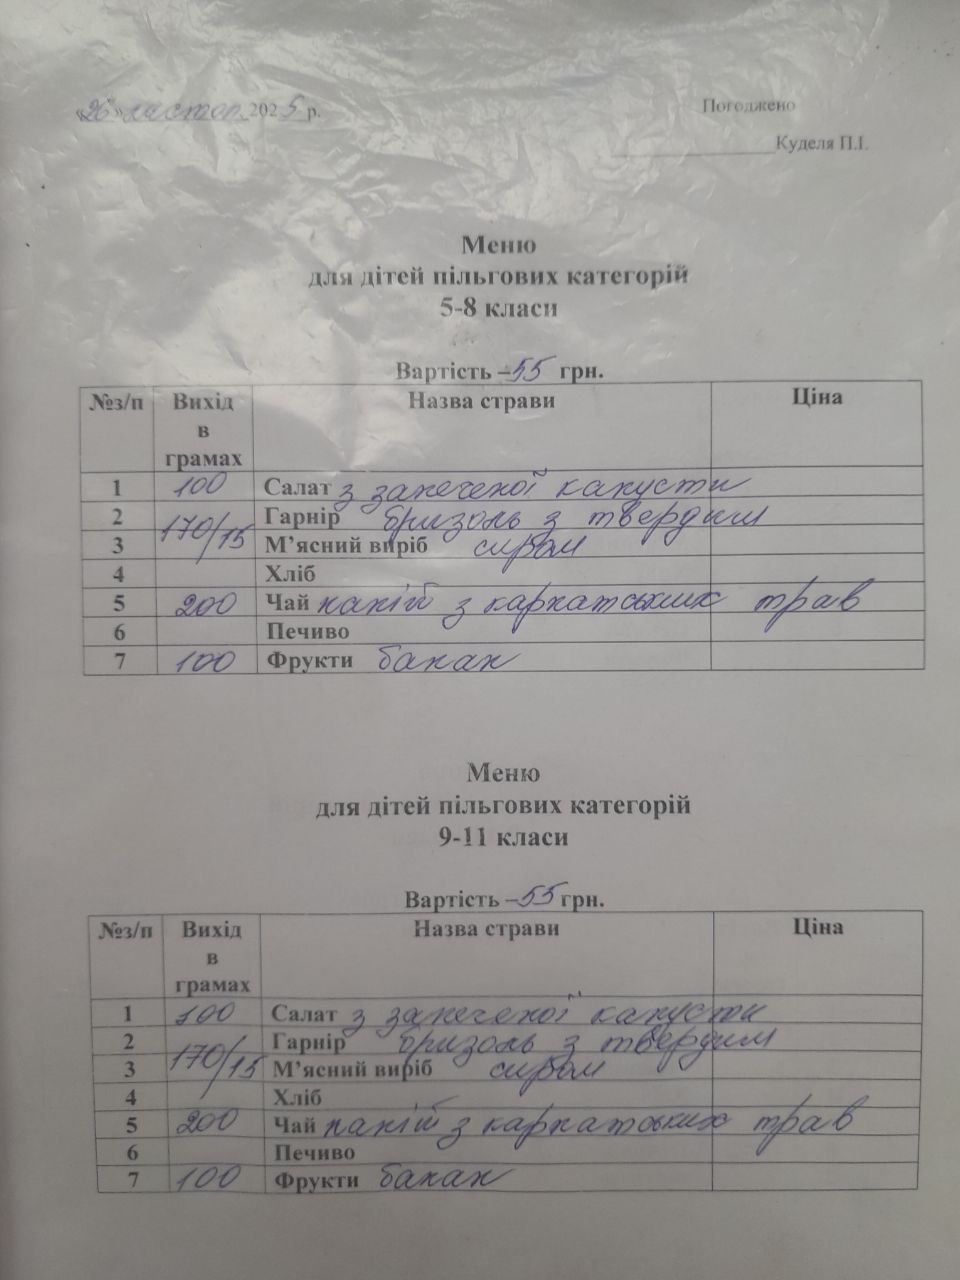 «26» листоп. 2025 р.
Погоджено
Куделя П.І.
Меню
для дітей пільгових категорій
5-8 класи
Вартість – 55 грн.
№з/п Вихід в грамах Назва страви Ціна
1 100 Салат з запеченої капусти
2 170/15 Гарнір бризоль з твердим
3 М’ясний виріб сиром
4 Хліб
5 200 Чай напій з карпатських трав
6 Печиво
7 100 Фрукти банан
Меню
для дітей пільгових категорій
9-11 класи
Вартість – 55 грн.
№з/п Вихід в грамах Назва страви Ціна
1 100 Салат з запеченої капусти
2 170/15 Гарнір бризоль з твердим
3 М’ясний виріб сиром
4 Хліб
5 200 Чай напій з карпатських трав
6 Печиво
7 100 Фрукти банан